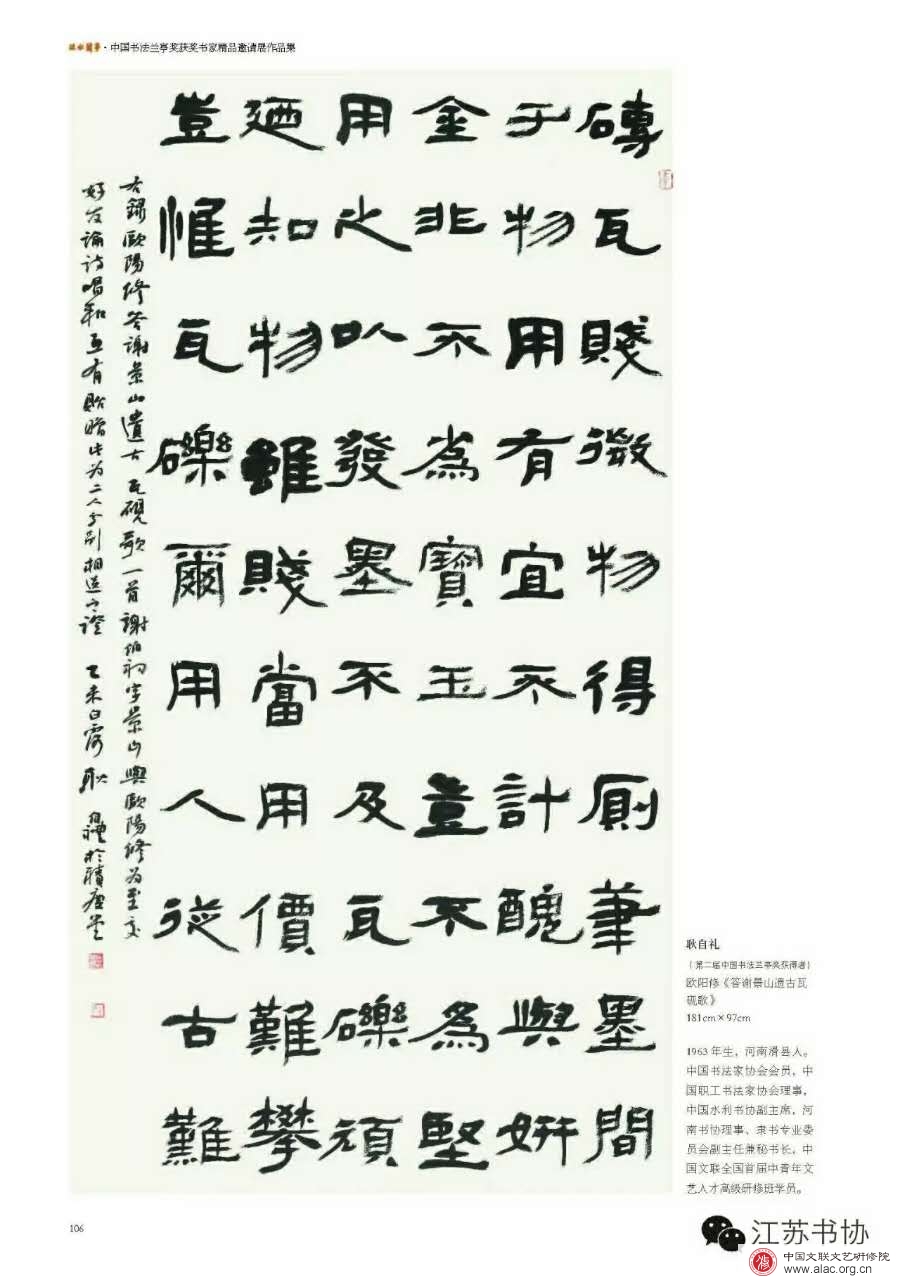 ·中国书法兰亭奖获奖书家精品邀请展作品集
磚瓦賤微物得厠筆墨間
于物用有宜不計醜與妍
金非不為寶玉豈不為堅
用之以發墨不及瓦礫頑
廼知物雖賤當用價難攀
豈惟瓦礫爾用人從古難
右錄歐陽修答謝景山遺古瓦硯歌一首謝伯初字景山與歐陽修為至交
好友論詩唱和互有貽贈此为二人分別相送之證 乙未白露耿自禮於積庵
耿自礼
（第二届中国书法兰亭奖获得者）
欧阳修《答谢景山遗古瓦
砚歌》
181cm×97cm
1963年生，河南滑县人。
中国书法家协会会员，中
国职工书法家协会理事，
中国水利书协副主席，河
南书协理事、隶书专业委
员会副主任兼秘书长，中
国文联全国首届中青年文
艺人才高级研修班学员。
106
江苏书协
中国文联文艺研修院
www.alac.org.cn